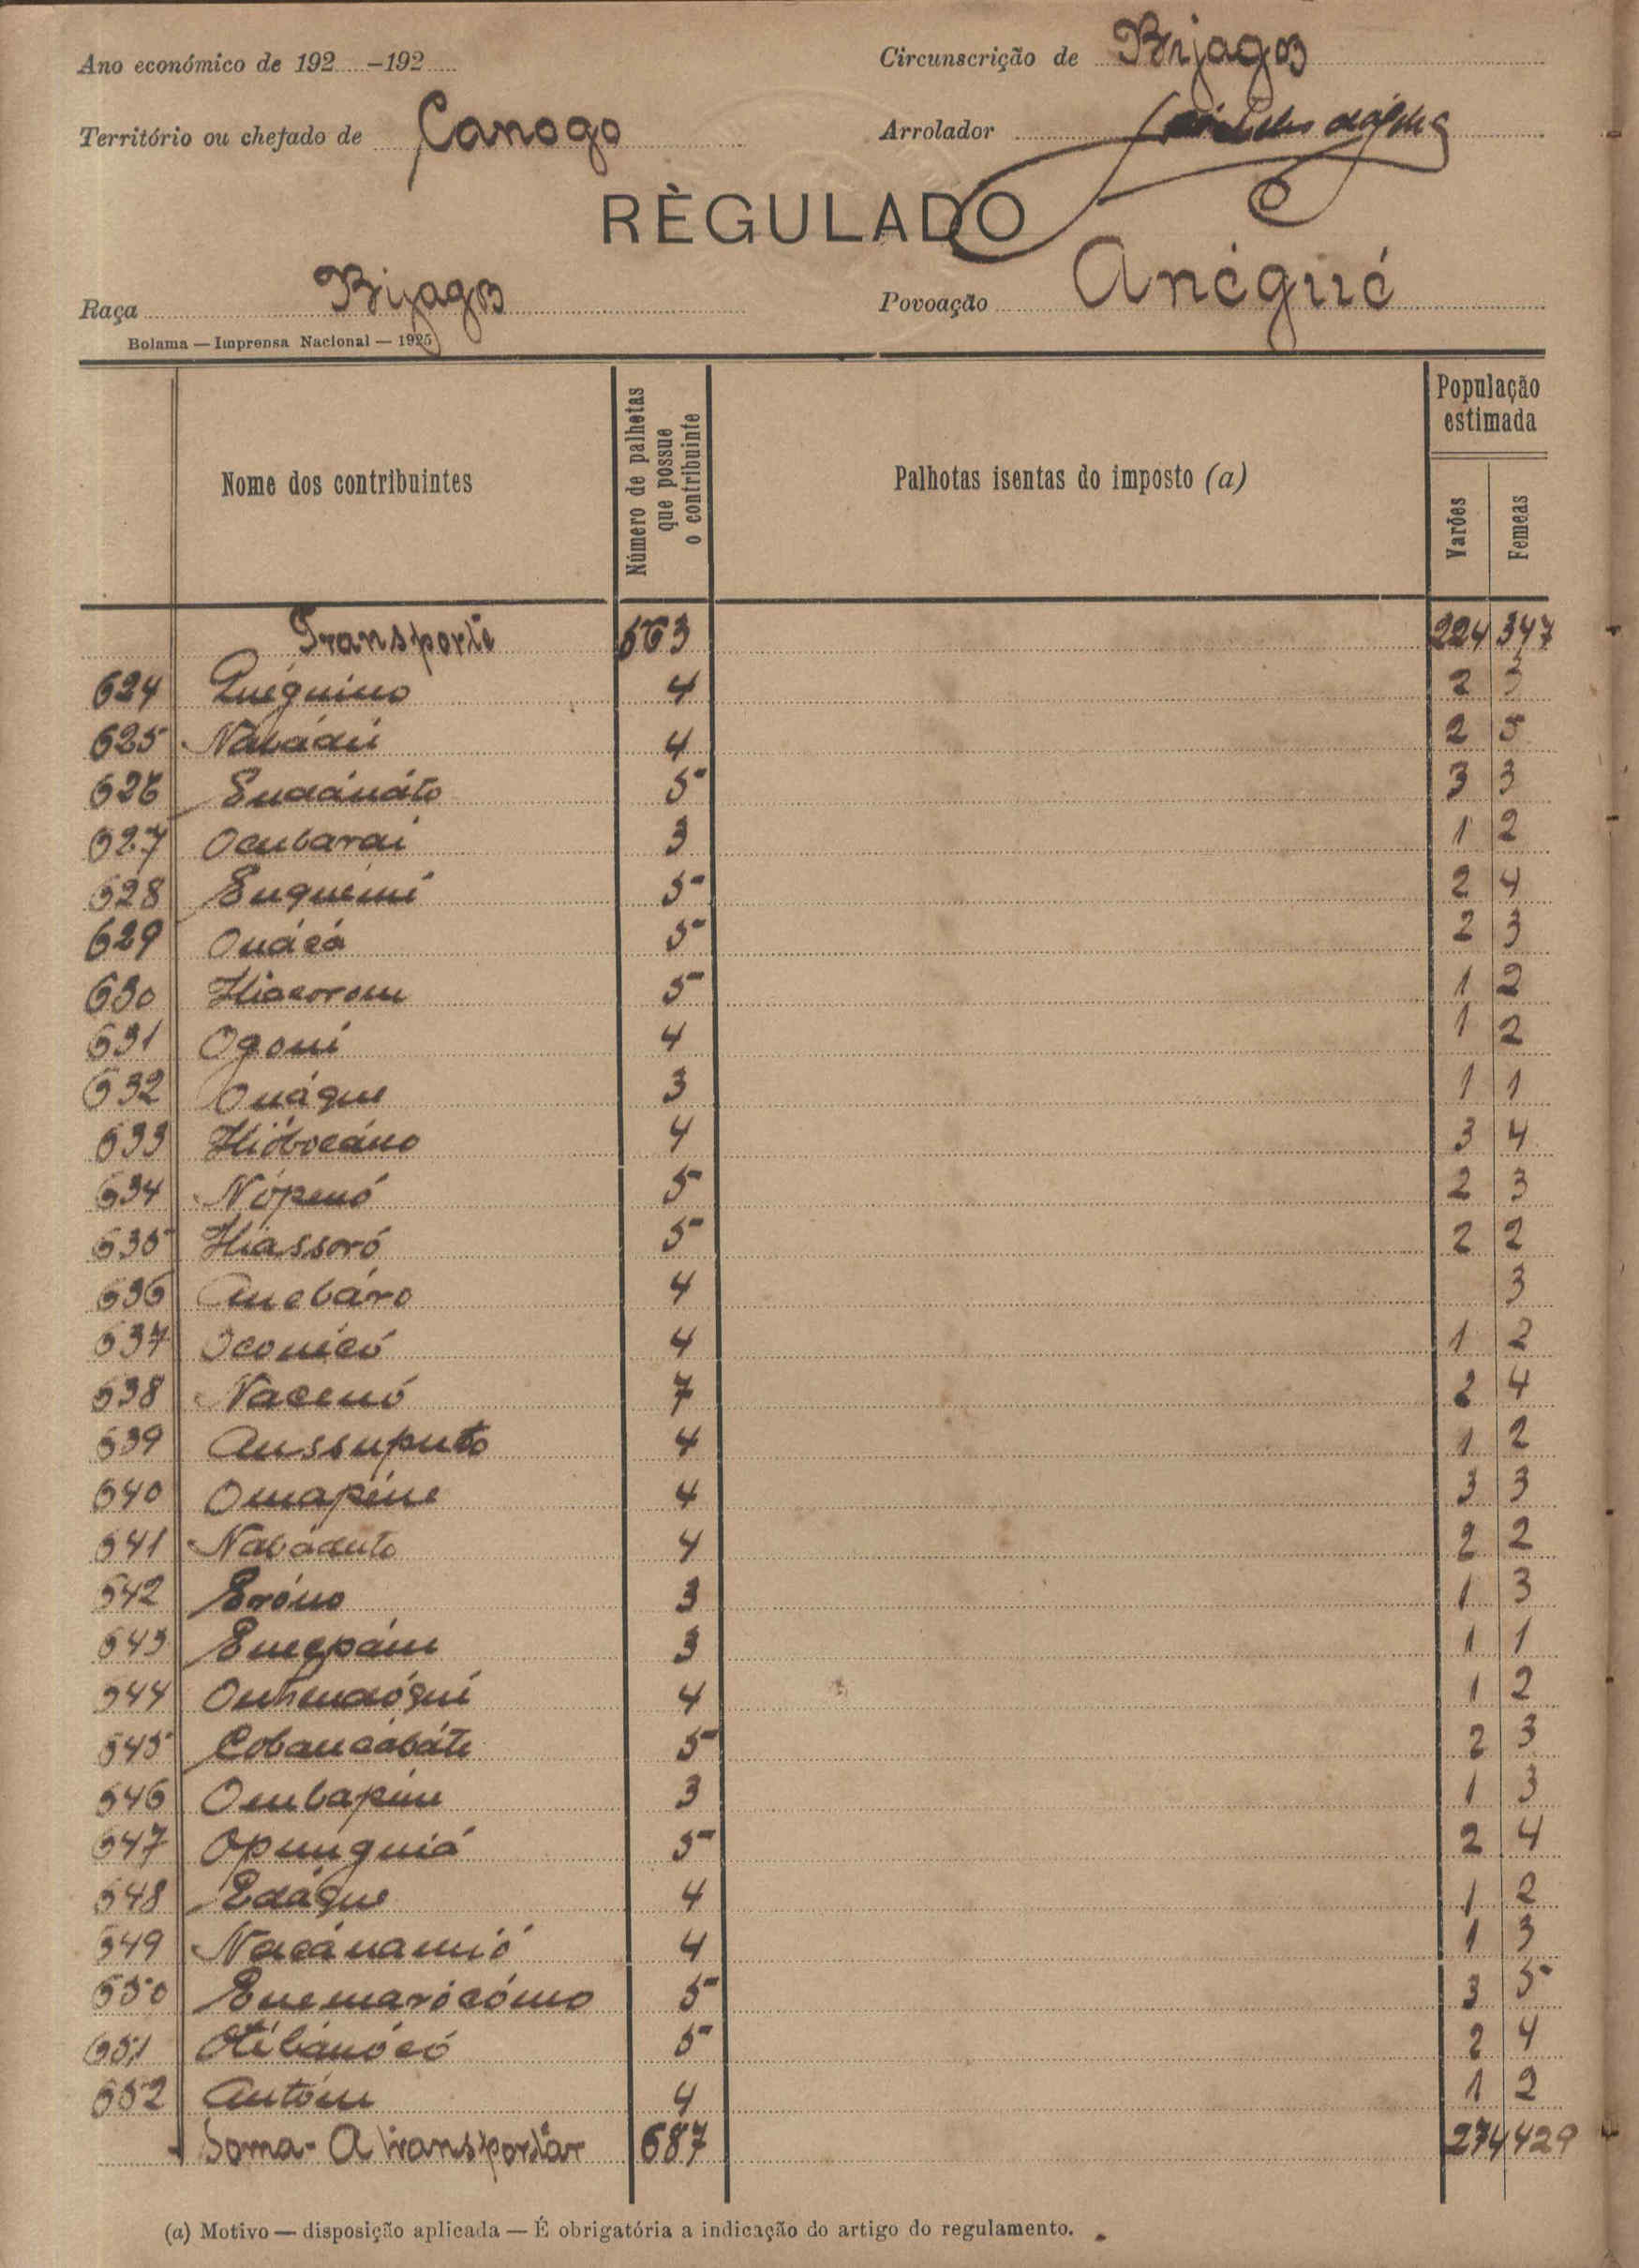 Ano económico de 192.....-192..... Circunscrição de Bijagos
Território ou chefado de Canogo Arrolador
RÈGULADO
Raça Bijagos Povoação Anégúé
Bolama — Imprensa Nacional — 1925
Nome dos contribuintes Número de palhetas que possue o contribuinte Palhotas isentas do imposto (a) População estimada Varões Femeas
Transporte 563 224 347
624 Quéguino 4 2 3
625 Nabádú 4 2 5
626 5 3 3
627 Ocubarai 3 1 2
628 Enquémi 5 2 4
629 Ouácá 5 2 3
630 5 1 2
631 Ogoni 4 1 2
632 Ouáque 3 1 1
633 4 3 4
634 Nópenó 5 2 3
635 Hiassoró 5 2 2
636 Anebáro 4 3
637 Oconicó 4 1 2
638 Nacenó 7 2 4
639 Aussuputo 4 1 2
640 Omapéne 4 3 3
641 Nabáduto 4 2 2
642 Eróno 3 1 3
643 Enepáne 3 1 1
644 4 1 2
645 Cobancábáte 5 2 3
646 Ombapim 3 1 3
647 Opunguiá 5 2 4
648 Edáque 4 1 2
649 Nacánamió 4 1 3
650 Enemarócómo 5 3 5
651 5 2 4
652 Antóni 4 1 2
Soma - A transportar 687 274 429
(a) Motivo — disposição aplicada — É obrigatória a indicação do artigo do regulamento.